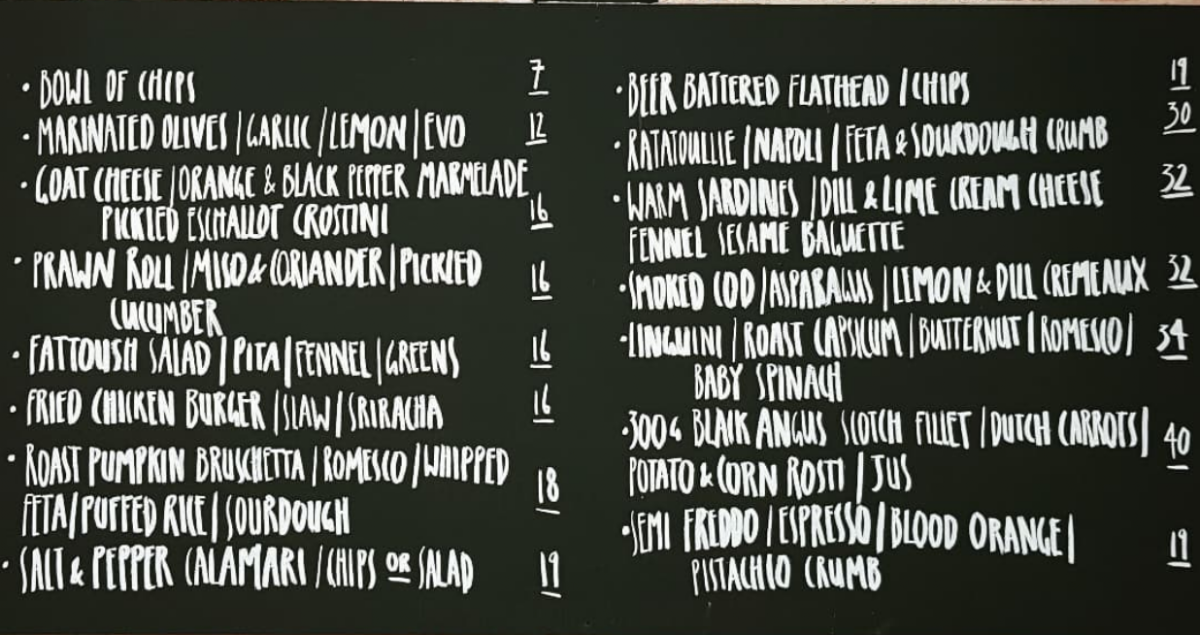 • BOWL OF CHIPS 7
• MARINATED OLIVES | GARLIC / LEMON | EVO 12
• GOAT CHEESE / ORANGE & BLACK PEPPER MARMELADE
PICKLED ESCHALLOT CROSTINI 16
• PRAWN ROLL / MISO & CORIANDER | PICKLED 16
CUCUMBER
• FATTOUSH SALAD | PITA | FENNEL | GREENS 16
• FRIED CHICKEN BURGER / SLAW / SRIRACHA 16
• ROAST PUMPKIN BRUSCHETTA / ROMESCO / WHIPPED
FETA / PUFFED RICE | SOURDOUGH 18
• SALT & PEPPER CALAMARI / CHIPS OR SALAD 19
• BEER BATTERED FLATHEAD / CHIPS 19
• RATATOUILLE / NAPOLI / FETA & SOURDOUGH CRUMB 30
• WARM SARDINES / DILL & LIME CREAM CHEESE 32
FENNEL SESAME BAGUETTE
• SMOKED COD / ASPARAGUS | LEMON & DILL CREMEAUX 32
• LINGUINI | ROAST CAPSICUM | BUTTERNUT | ROMESCO | 34
BABY SPINACH
• 300G BLACK ANGUS SCOTCH FILLET / DUTCH CARROTS | 40
POTATO & CORN ROSTI | JUS
• SEMI FREDDO / ESPRESSO | BLOOD ORANGE | 19
PISTACHIO CRUMB